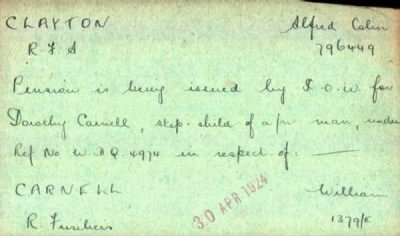 CLAYTON Alfred Colin
R.F.A 796449
Pension is being issued by I.O.W. for
Dorothy Carnell, step-child of a/n man, under
Ref No W.D.Q. 4974 in respect of: —
CARNELL William
R. Fusiliers 1379/E
30 APR 1924